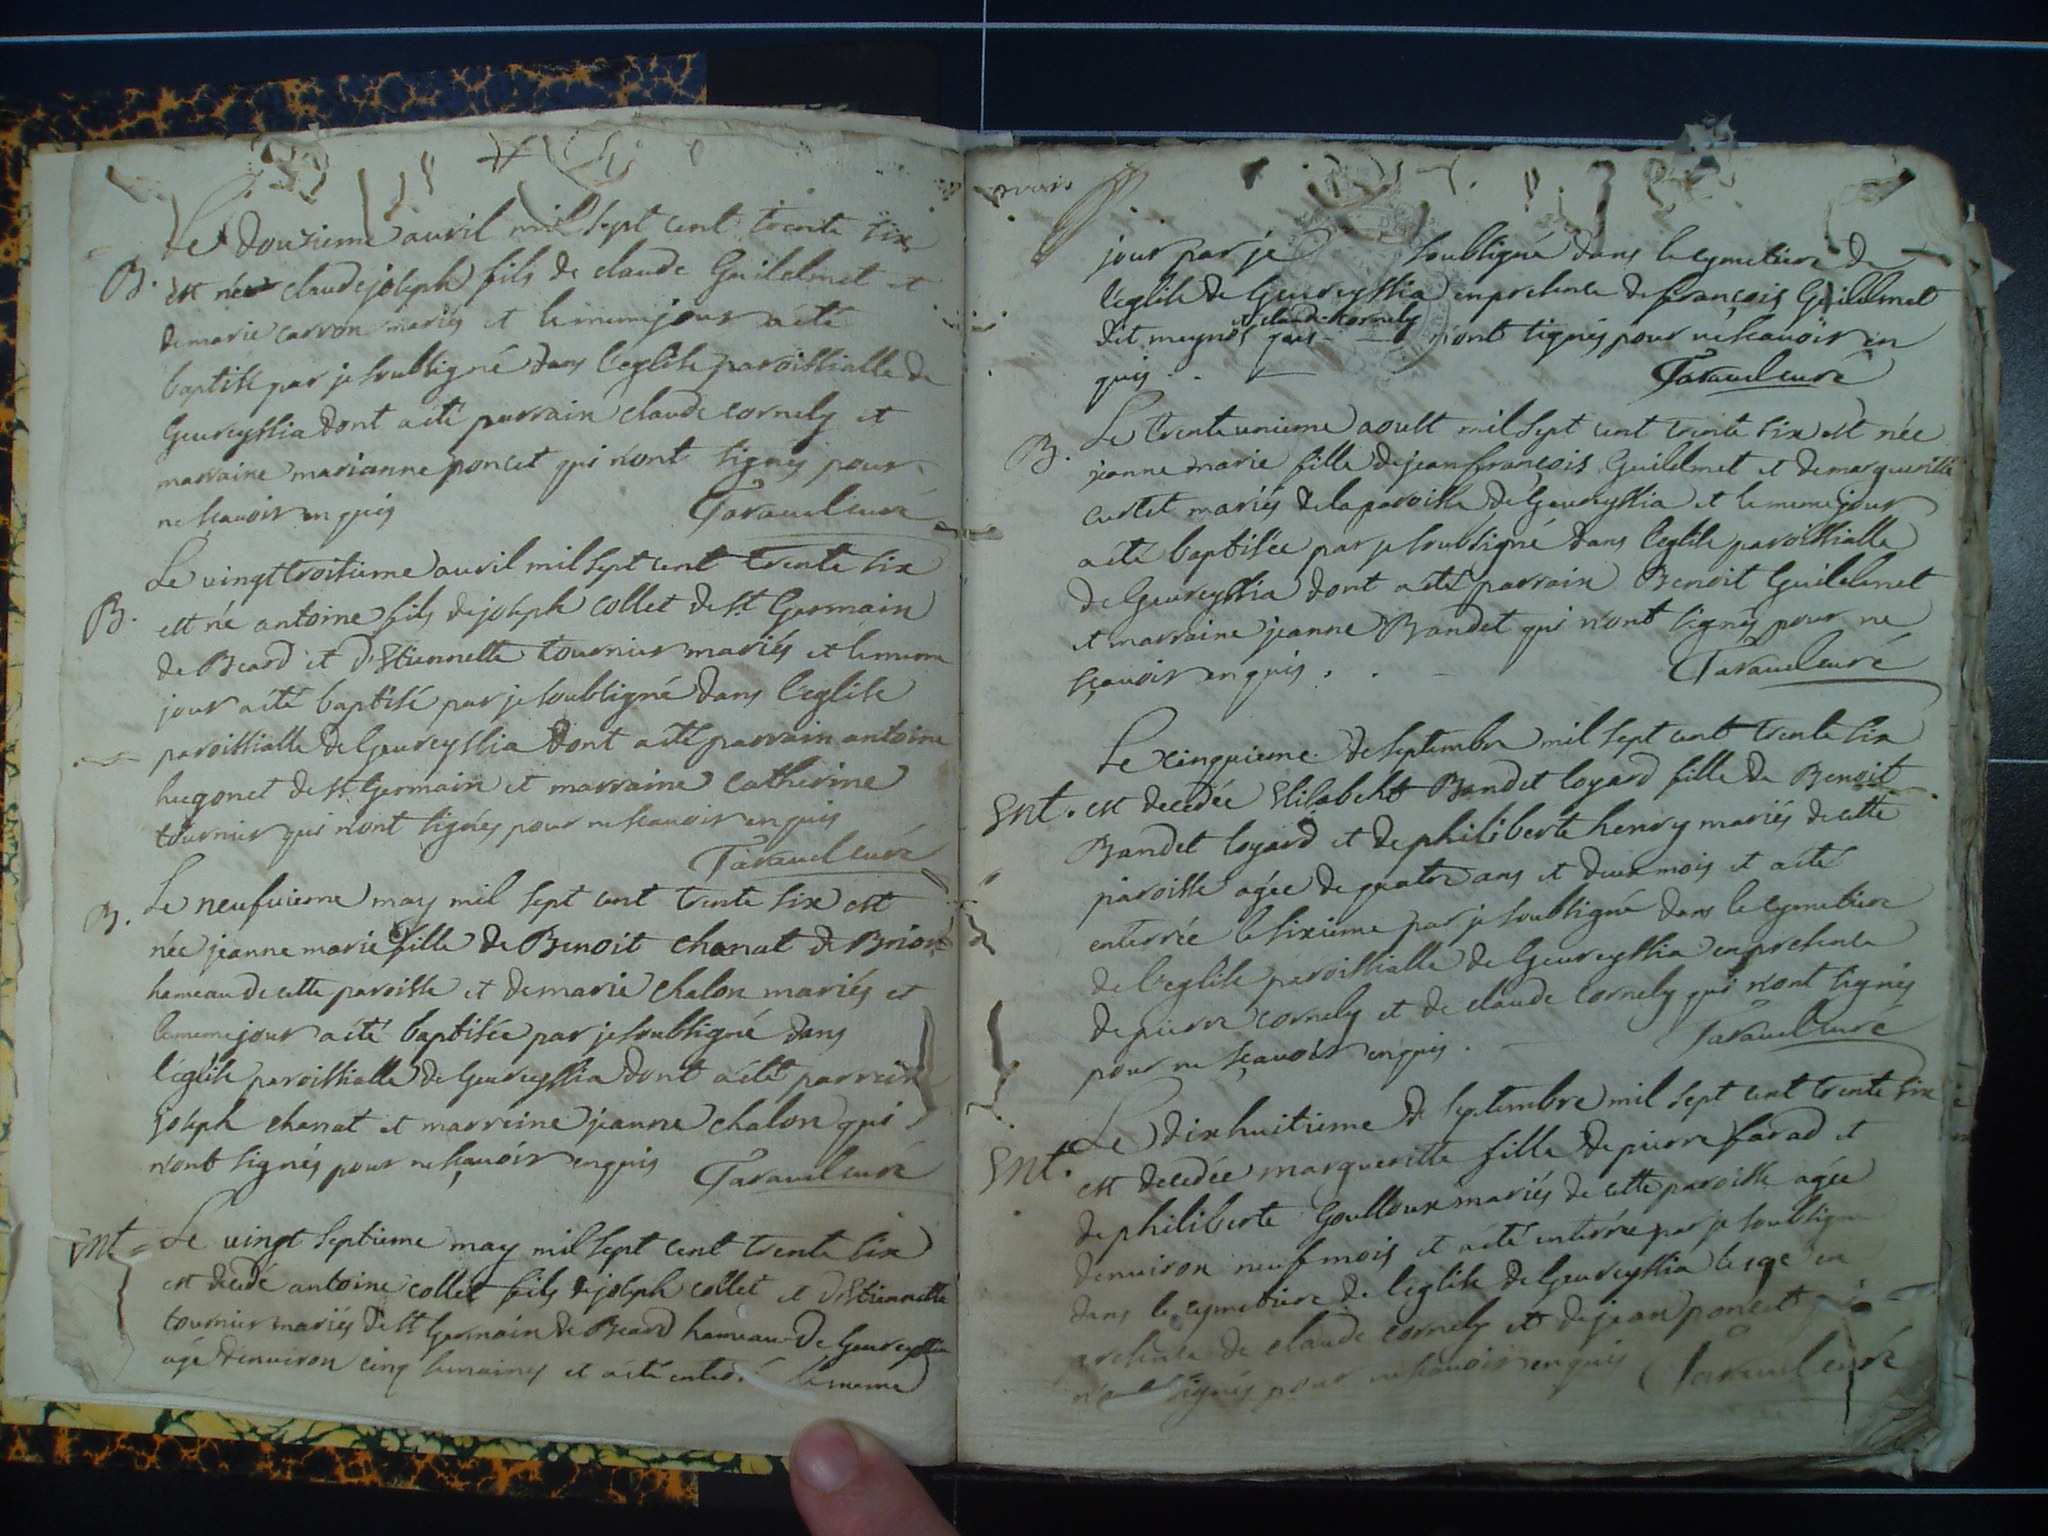 Le douzieme avril mil sept cent trente six
B. est né claude joseph fils de claude Guilelmet et
de marie carron mariés et le meme jour a eté
baptisé par je soubsigné dans l'eglise paroissialle de
Geureyssia dont a eté parrain claude cornely et
marraine marianne poncet qui n'ont signés pour
ne scavoir enquis Taravel curé
Le vingt troisieme avril mil sept cent trente six
B. est né antoine fils de joseph collet de St Germain
de Beard et d'Estiennette tournier mariés et le meme
jour a eté baptisé par je soubsigné dans l'eglise
paroissialle de Geureyssia dont a eté parrain antoine
hugonet de St Germain et marraine catherine
tournier qui n'ont signés pour ne scavoir enquis
Taravel curé
B. Le neufvieme may mil sept cent trente six est
née jeanne marie fille de Benoit chanat de Brion
hameau de cette paroisse et de marie chalon mariés et
le meme jour a eté baptisée par je soubsigné dans
l'eglise paroissialle de Geureyssia dont a eté parrein
joseph chanat et marreine jeanne chalon qui
n'ont signés pour ne sçavoir enquis Taravel curé
Ent = Le vingt septieme may mil sept cent trente six
est decedé antoine collet fils de joseph collet et d'Estiennette
tournier mariés de St Germain de Beard hameau de Geureyssia
agé d'environ cinq semaines et a eté enterré le meme
jour par je soubsigné dans le cymetiere de
l'eglise de Geureyssia en presence de françois Guilelmet
et claude cornely
dit meynos qui n'ont signés pour ne scavoir en
quis Taravel curé
Le trente unieme aoust mil sept cent trente six est née
B. jeanne marie fille de jean françois Guilelmet et de margueritte
curtet mariés de la paroisse de Geureyssia et le meme jour
a eté baptisée par je soubsigné dans l'eglise paroissialle
de Geureyssia dont a eté parrain Benoit Guilelmet
et marraine jeanne Bandet qui n'ont signés pour ne
sçavoir enquis. Taravel curé
Le cinquieme de septembre mil sept cent trente six
Ent. est decedée Elisabeht Bandet loyard fille de Benoit
Bandet loyard et de philiberte henry mariés de cette
paroisse agée de quatre ans et deux mois et a eté
enterrée le sixieme par je soubsigné dans le cymetiere
de l'eglise paroissialle de Geureyssia en presence
de pierre cornely et de claude cornely qui n'ont signés
pour ne sçavoir enquis. Taravel curé
Le dixhuitieme de septembre mil sept cent trente six
Ent. est decedée marguerite fille de pierre farad et
de philiberte Goulloux mariés de cette paroisse agée
d'environ neuf mois et a eté enterrée par je soubsigné
dans le cymetiere de l'eglise de Geureyssia le 19e en
presence de claude cornely et de jean poncet qui
n'ont signés pour ne scavoir enquis Taravel curé